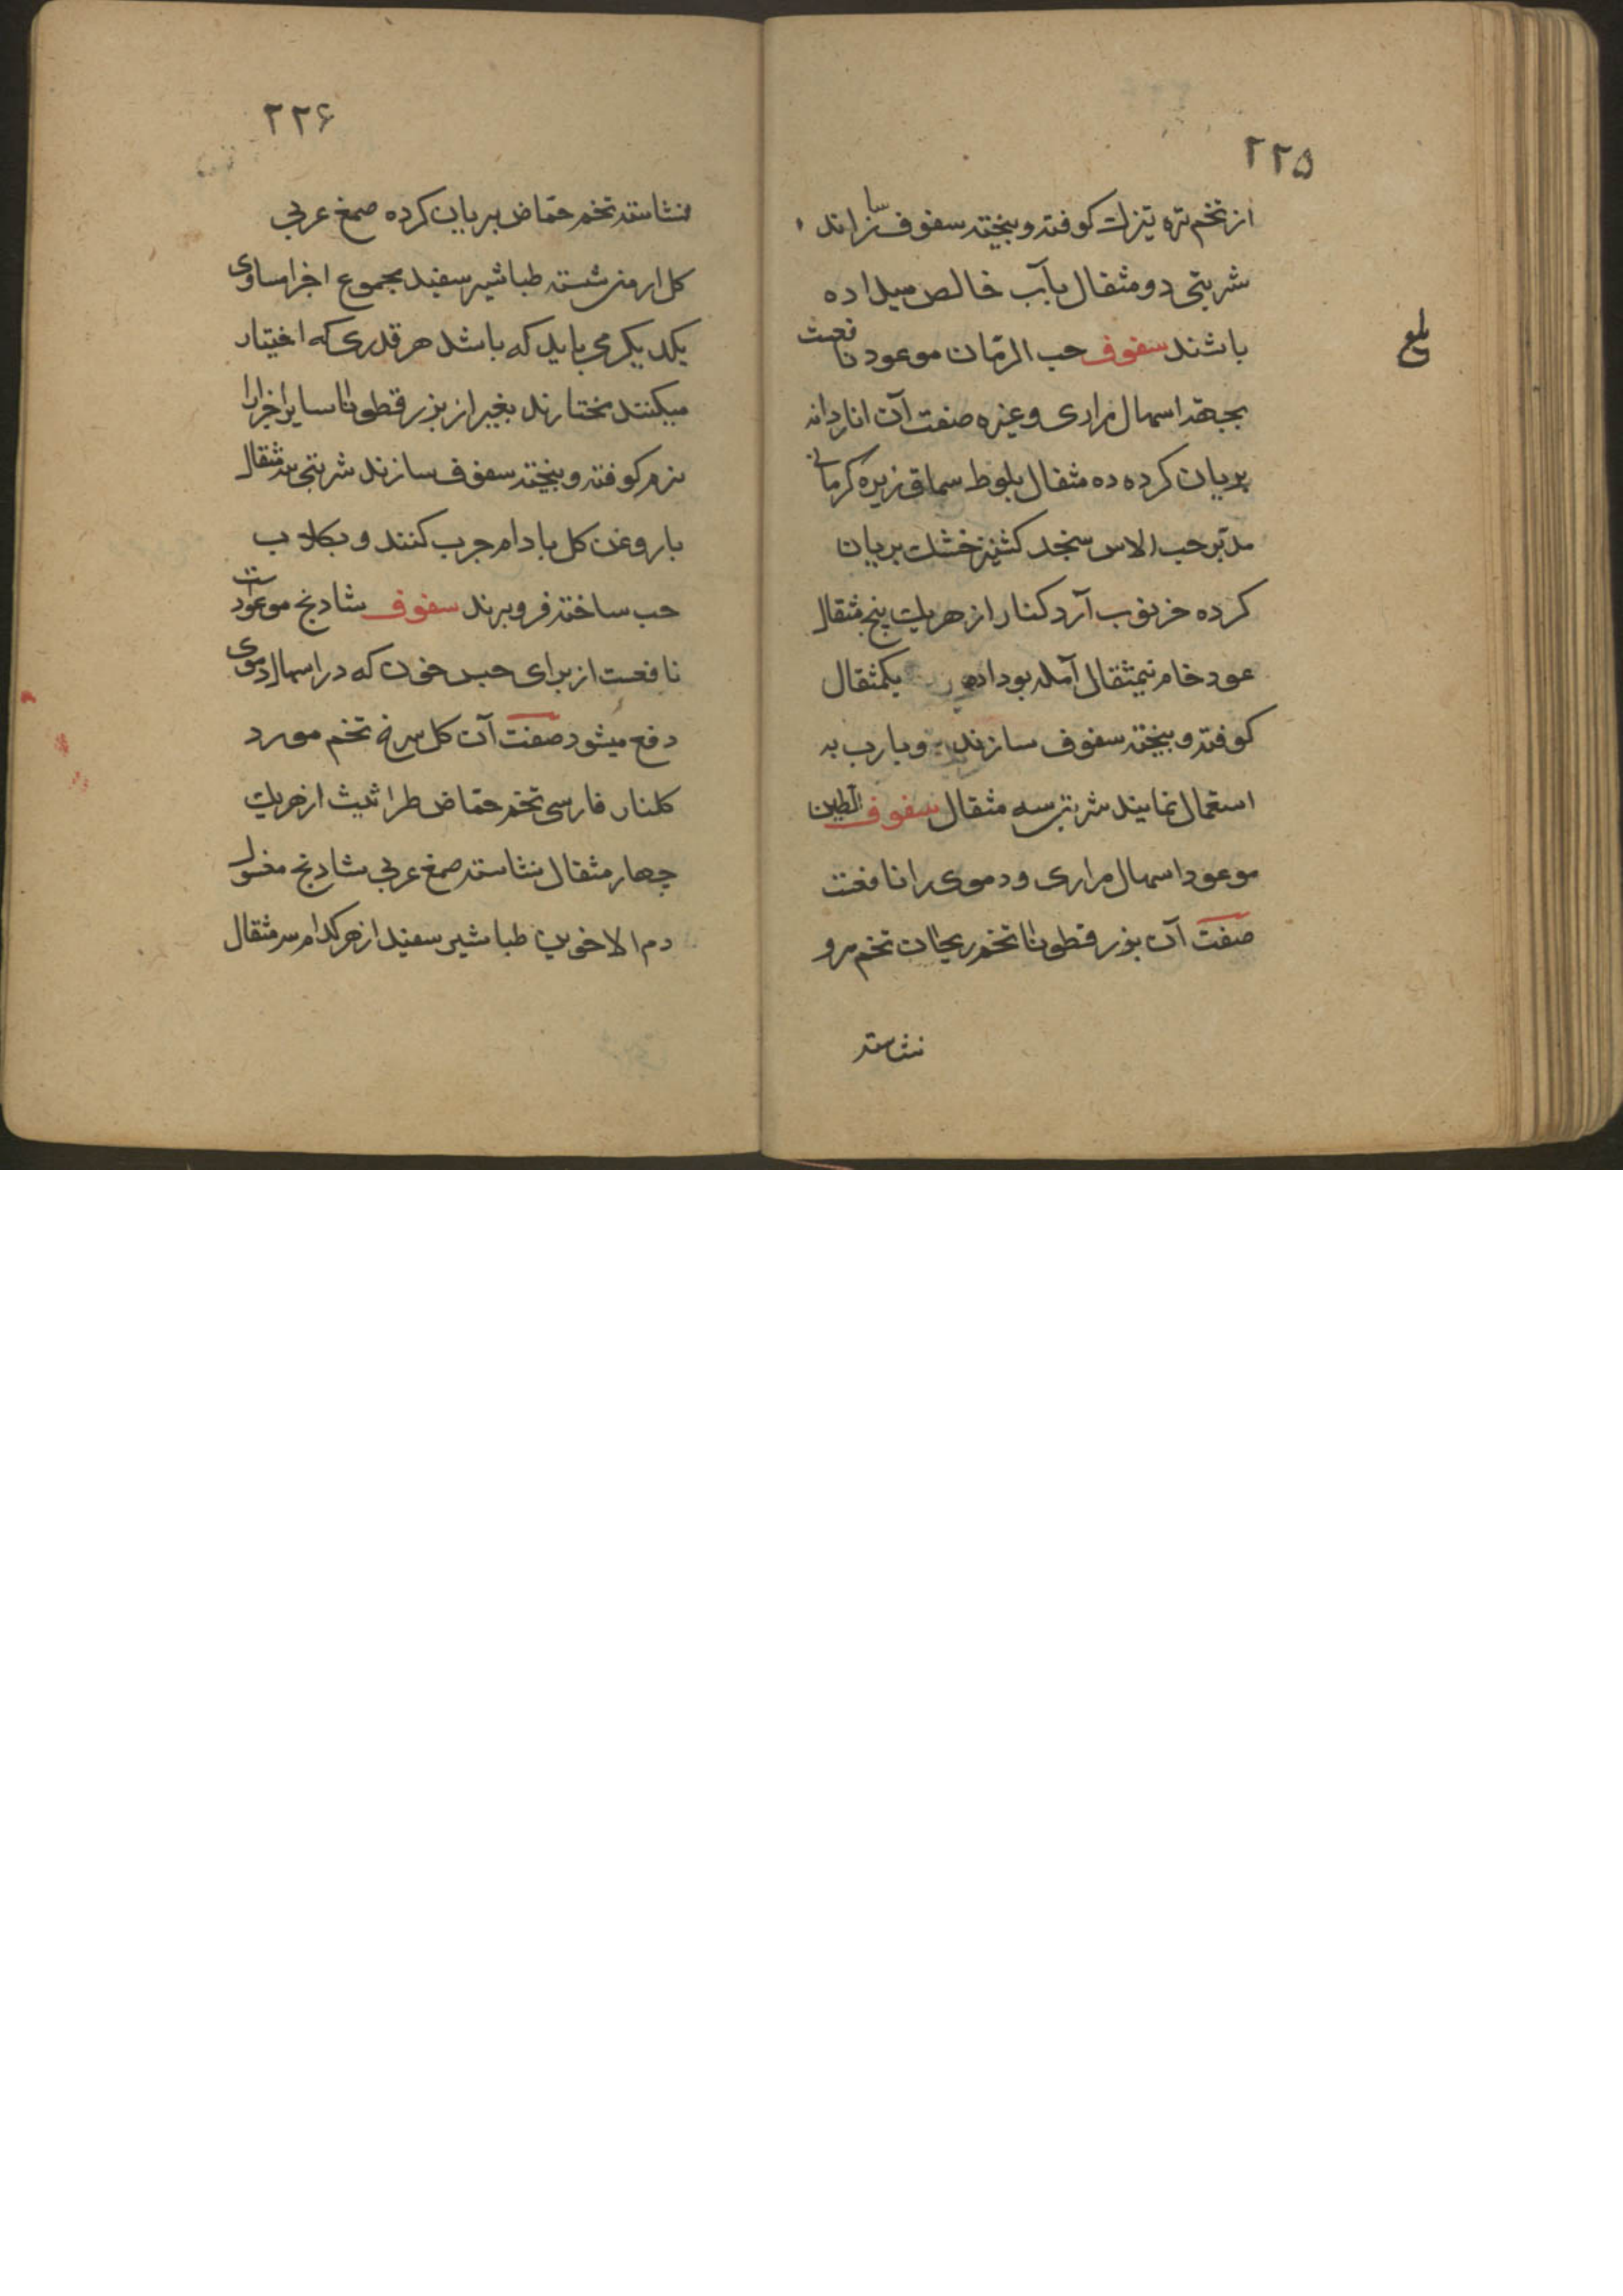 ۲۲۵
از تخم تره تیزک کوفته و بیخته سفوف سازاند
شربتی دو مثقال بآب خالص میداده
باشند سفوف حب الرمّان موعود نافعست
بجهة اسهال مراری و غیره صفت آن اناردانه
بریان کرده ده مثقال بلوط سماق زیره کرمانی
مدبّر حب الاس سنجد کشنیز خشک بریان
کرده خرنوب آرد کنار از هریک پنج مثقال
عود خام نیمثقال آمله بوداده یکمثقال
کوفته و بیخته سفوف سازند و با رب به
استعمال نمایند شربتی سه مثقال سفوف الطین
موعود اسهال مراری و دموی را نافعت
صفت آن بزر قطونا تخم ریحان تخم مرو
نشاسته
بلغ
۲۲۶
نشاسته تخم حمّاض بریان کرده صمغ عربی
کل ارمنی شسته طباشیر سفید مجموع اجزا مساوی
یکدیکر می باید که باشد هر قدری که اختیار
میکنند مختارند بغیر از بزر قطونا سایر اجزا را
نرم کوفته و بیخته سفوف سازند شربتی سه مثقال
با روغن کل بادام جرب کنند و بکلاب
حب ساخته فرو برند سفوف شادنج موعود است
نافعست از برای حبس خون که در اسهال دموی
دفع میشود صفت آن کل سرخ تخم مورد
کلنار فارسی تخم حمّاض طراثیث از هریک
چهار مثقال نشاسته صمغ عربی شادنج مغسول
دم الاخوین طباشیر سفید از هرکدام سه مثقال